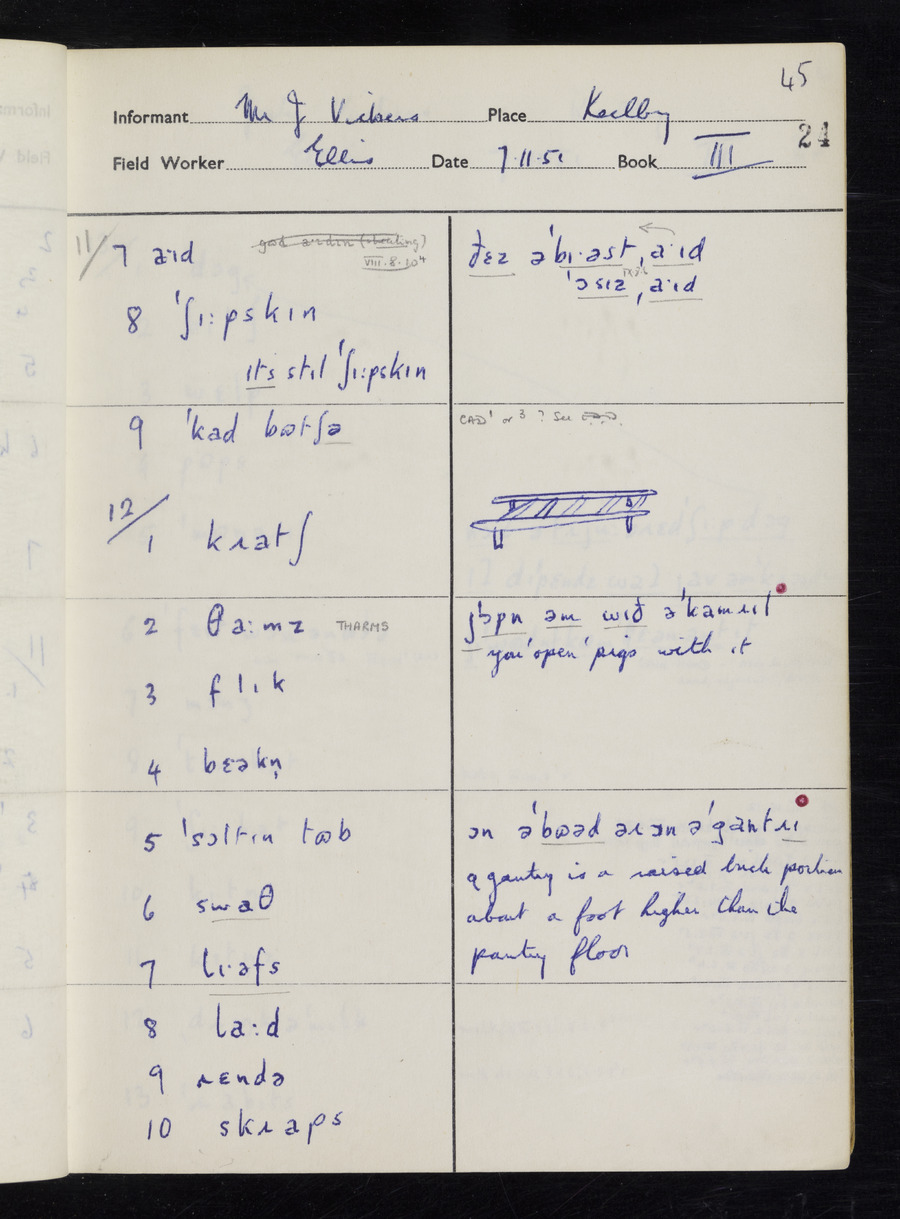 45
Informant Mr J Vickers Place Keelby
24
Field Worker Ellis Date 7.11.51 Book III
11/ 7 aːɪd
(shouting)
VIII.8.10
8 ˈʃɪːpskɪn
ɪts stɪl ˈʃɪːpskɪn
ðɛz əˈbɪˑəst, aˑɪd
ˈɔsɪz, aˑɪd
9 ˈkad bʊtʃə
CAD¹ or ³? See CAD.
12/ 1 kɹatʃ
2 θaːmz THARMS
3 flɪk
4 bɛəkn̩
jˈɔpn əm wɪð əˈkamɹɪl
you 'open' pigs with it
5 ˈsɔltɪn tʊb
6 swaθ
7 lɪˑəfs
ɔn əˈbʊəd əɹ ɔn əˈgantɹɪ
a gantry is a raised brick portion
about a foot higher than the
pantry floor
8 laːd
9 ɹɛndə
10 skɹaps